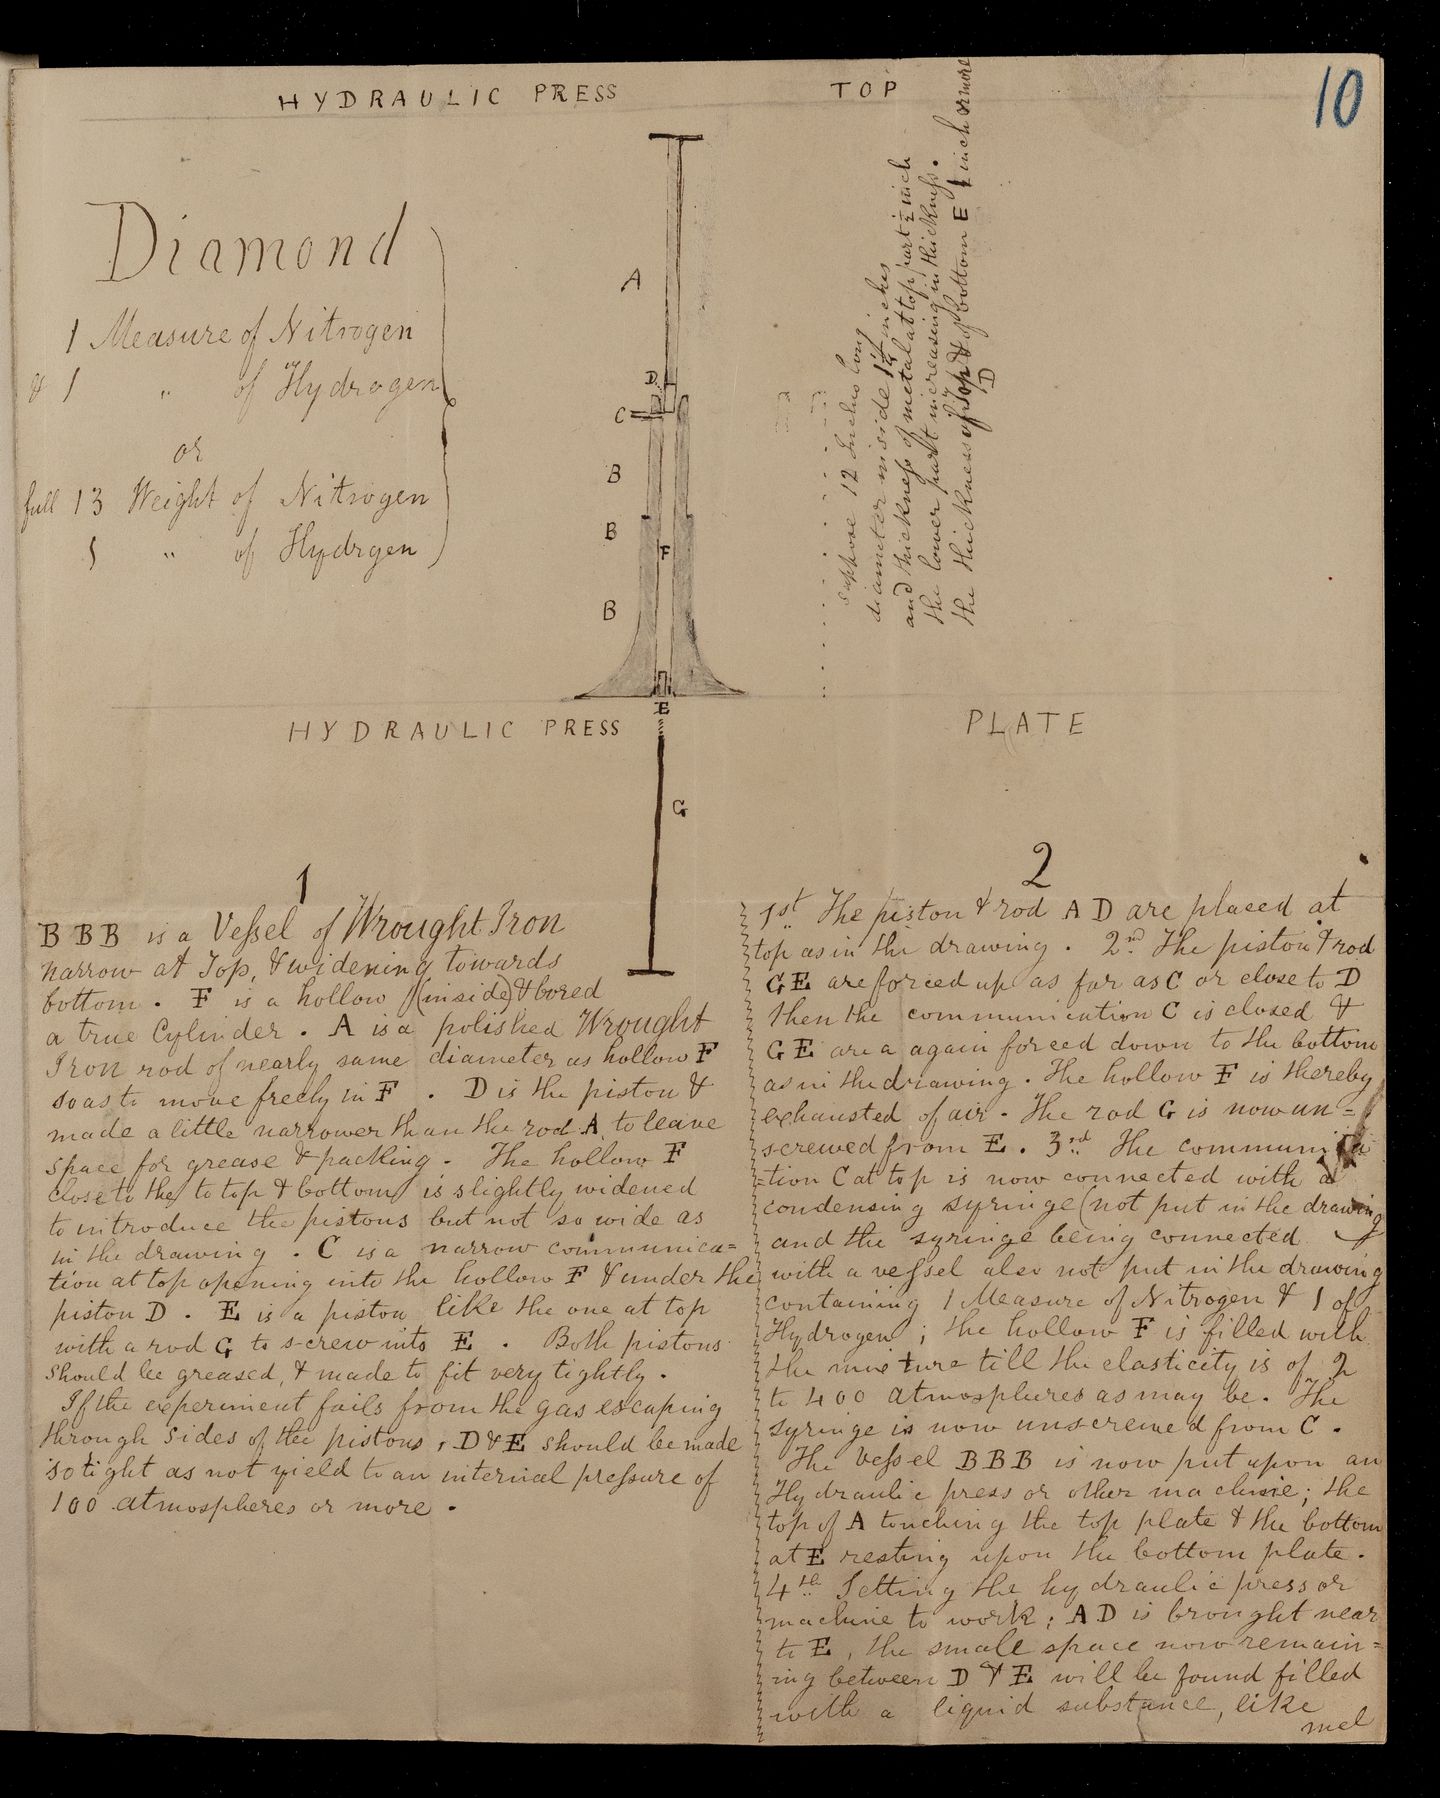 HYDRAULIC PRESS TOP
10
Diamond
1 Measure of Nitrogen
& 1 " of Hydrogen
or
full 13 Weight of Nitrogen
1 " of Hydrgen
A
D
C
B
B
F
B
E
G
suppose 12 Inches long
diameter inside 1¼ inches
and thickness of metal at top part ½ inch
the lower part increasing in thickness.
the thickness of top & of bottom E ½ inch or more
D
HYDRAULIC PRESS PLATE
1
BBB is a Vessel of Wrought Iron
narrow at Top, & widening towards
bottom. F is a hollow (inside) & bored
a true Cylinder. A is a polished Wrought
Iron rod of nearly same diameter as hollow F
so as to move freely in F. D is the piston &
made a little narrower than the rod A to leave
space for grease & packing. The hollow F
close to the to top & bottom is slightly widened
to introduce the pistons but not so wide as
in the drawing. C is a narrow communica=
tion at top opening into the hollow F & under the
piston D. E is a piston like the one at top
with a rod G to screw into E. Both pistons
should be greased, & made to fit very tightly.
If the experiment fails from the gas escaping
through sides of the pistons, D & E should be made
so tight as not yield to an internal pressure of
100 atmospheres or more.
2
1st The piston & rod AD are placed at
top as in the drawing. 2nd The piston & rod
GE are forced up as far as C or close to D
then the communication C is closed &
GE are a again forced down to the bottom
as in the drawing. The hollow F is thereby
exhausted of air. The rod G is now un=
screwed from E. 3rd The communica
=tion C at top is now connected with a
condensing syringe (not put in the drawing
and the syringe being connected
with a vessel also not put in the drawing
containing 1 Measure of Nitrogen & 1 of
Hydrogen; the hollow F is filled with
the mixture till the elasticity is of 2
to 400 atmospheres as may be. The
syringe is now unscrewed from C.
The Vessel BBB is now put upon an
Hydraulic press or other machine; the
top of A touching the top plate & the bottom
at E resting upon the bottom plate.
4th Setting the hydraulic press or
machine to work; AD is brought near
to E, the small space now remain=
ing between D & E will be found filled
with a liquid substance, like
mel